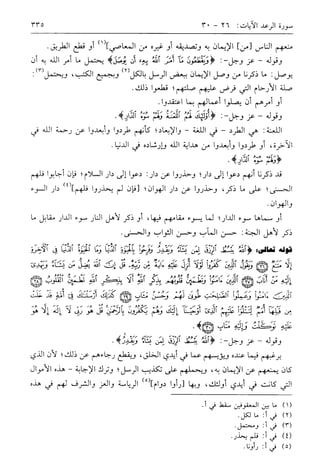 سورة الرعد الآيات: ٢٦ - ٣٠ ٣٣٥
منعهم الناس [من] الإيمان به وتصديقه أو غيره من المعاصي](١) أو قطع الطريق.
وقوله - عز وجل -: ﴿وَيَقْطَعُونَ مَآ أَمَرَ ٱللَّهُ بِهِۦٓ أَن يُوصَلَ﴾ يحتمل ما أمر الله به أن
يوصل: ما ذكرنا من وصل الإيمان ببعض الرسل بالكل(٢) وبجميع الكتب، ويحتمل(٣):
صلة الأرحام التي فرض عليهم صلتهم؛ قطعوا ذلك.
أو أمرهم أن يصلوا أعمالهم بما اعتقدوا.
وقوله - عز وجل -: ﴿أُوْلَٰٓئِكَ لَهُمُ ٱللَّعْنَةُ وَلَهُمْ سُوٓءُ ٱلدَّارِ﴾.
اللعنة: هي الطرد - في اللغة - والإبعاد؛ كأنهم طردوا وأبعدوا عن رحمة الله في
الآخرة، أو طردوا وأبعدوا من هداية الله وإرشاده في الدنيا.
﴿وَلَهُمْ سُوٓءُ ٱلدَّارِ﴾.
قد ذكرنا أنهم دعوا إلى دار؛ وحذروا عن دار: دعوا إلى دار السلام؛ فإن أجابوا فلهم
الحسنى؛ على ما ذكر، وحذروا عن دار الهوان؛ [فإن لم يحذروا فلهم](٤) دار السوء
والهوان.
أو سماها سوء الدار؛ لما يسوء مقامهم فيها، أو ذكر لأهل النار سوء الدار مقابل ما
ذكر لأهل الجنة: حسن المآب وحسن الثواب والحسنى.
قوله تعالى: ﴿ٱللَّهُ يَبْسُطُ ٱلرِّزْقَ لِمَن يَشَآءُ وَيَقْدِرُ وَفَرِحُوا۟ بِٱلْحَيَوٰةِ ٱلدُّنْيَا وَمَا ٱلْحَيَوٰةُ ٱلدُّنْيَا فِى ٱلْءَاخِرَةِ
إِلَّا مَتَٰعٌ ۝ وَيَقُولُ ٱلَّذِينَ كَفَرُوا۟ لَوْلَآ أُنزِلَ عَلَيْهِ ءَايَةٌ مِّن رَّبِّهِۦ قُلْ إِنَّ ٱللَّهَ يُضِلُّ مَن يَشَآءُ وَيَهْدِىٓ
إِلَيْهِ مَنْ أَنَابَ ۝ ٱلَّذِينَ ءَامَنُوا۟ وَتَطْمَئِنُّ قُلُوبُهُم بِذِكْرِ ٱللَّهِ أَلَا بِذِكْرِ ٱللَّهِ تَطْمَئِنُّ ٱلْقُلُوبُ ۝
ٱلَّذِينَ ءَامَنُوا۟ وَعَمِلُوا۟ ٱلصَّٰلِحَٰتِ طُوبَىٰ لَهُمْ وَحُسْنُ مَـَٔابٍ ۝ كَذَٰلِكَ أَرْسَلْنَٰكَ فِىٓ أُمَّةٍ قَدْ خَلَتْ
مِن قَبْلِهَآ أُمَمٌ لِّتَتْلُوَا۟ عَلَيْهِمُ ٱلَّذِىٓ أَوْحَيْنَآ إِلَيْكَ وَهُمْ يَكْفُرُونَ بِٱلرَّحْمَٰنِ قُلْ هُوَ رَبِّى لَآ إِلَٰهَ إِلَّا هُوَ
عَلَيْهِ تَوَكَّلْتُ وَإِلَيْهِ مَتَابِ ۝﴾.
وقوله - عز وجل -: ﴿ٱللَّهُ يَبْسُطُ ٱلرِّزْقَ لِمَن يَشَآءُ وَيَقْدِرُ﴾.
يرغبهم فيما عنده ويؤيسهم عما في أيدي الخلق، ويقطع رجاءهم عن ذلك؛ لأن الذي
كان يمنعهم عن الإيمان به، ويحملهم على تكذيب الرسل؛ وترك الإجابة - هذه الأموال
التي كانت في أيدي أولئك، وبها [رأوا دوام](٥) الرياسة والعز والشرف لهم في هذه
(١) ما بين المعقوفين سقط في أ.
(٢) في أ: ما لكل.
(٣) في أ: ومحتمل.
(٤) في أ: فلم يحذر.
(٥) في أ: رأونا.